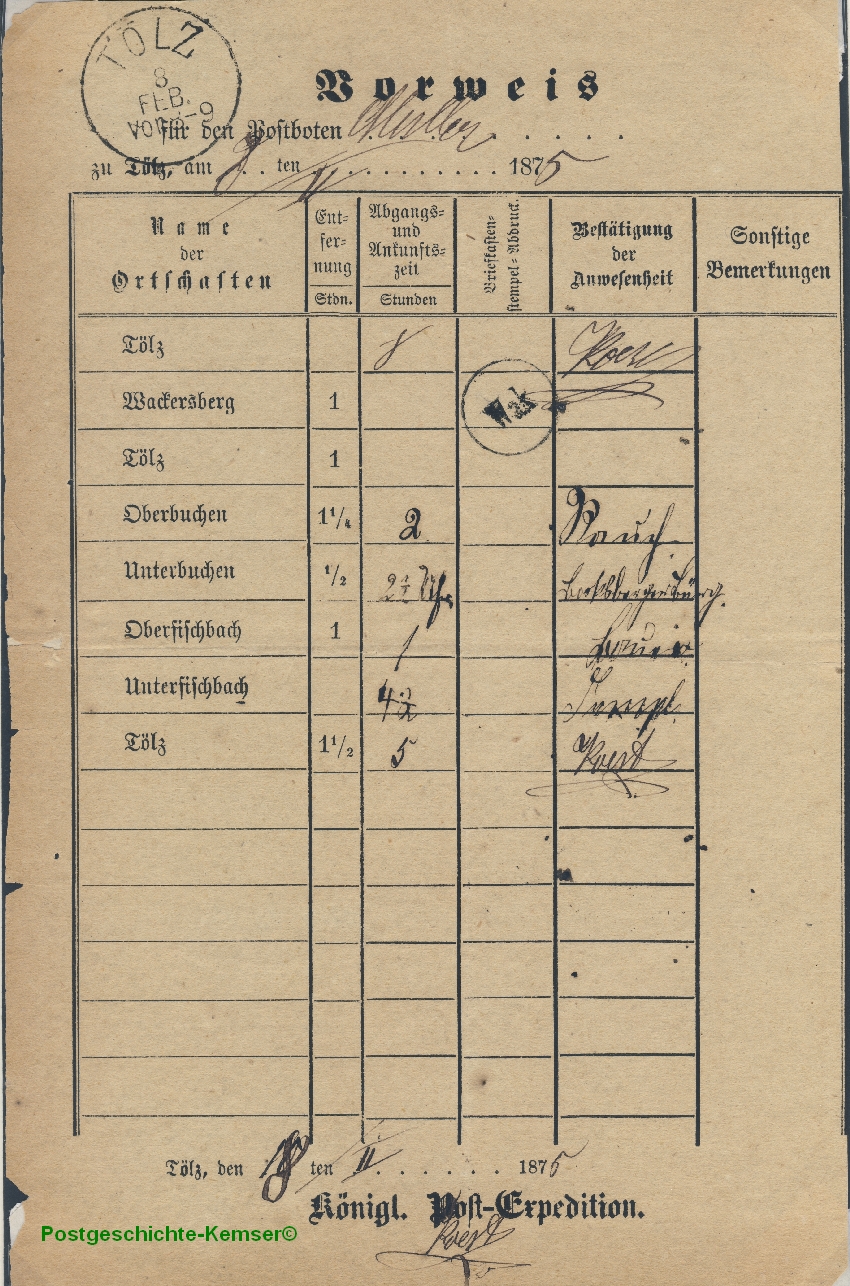 TÖLZ
8
FEB.
VOR.8-9
Vorweis
für den Postboten
zu Tölz, am 8. ten II 1875
Name der Ortschaften
Ent-fer-nung
Stdn.
Abgangs- und Ankunfts-zeit
Stunden
Briefkasten-stempel-Abdruck.
Bestätigung der Anwesenheit
Sonstige Bemerkungen
Tölz 8
Wackersberg 1 Wak
Tölz 1
Oberbuchen 1¼ 2 Rauch
Unterbuchen ½ 2½ Uhr
Oberfischbach 1
Unterfischbach 4½
Tölz 1½ 5
Tölz, den 8 ten II 1875
Königl. Post-Expedition.
Postgeschichte-Kemser©